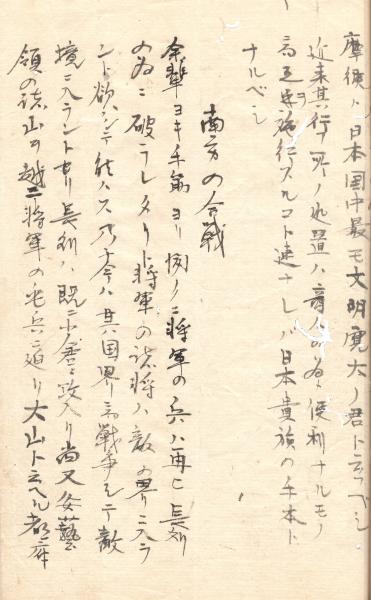 摩侯ハ日本国中最モ文明寛大ノ君ト云ツヘシ
近来其行フ所ノ処置ハ商人ノ為ニ便利ナルモノ
ヲ施行スルコト速ナレハ日本貴族の手本ト
ナルベシ
南方の合戦
余輩ヨキ手筋ヨリ聞クニ将軍の兵ハ再ヒ長州
の為ニ破ラレタリト将軍の諸将ハ敵の界ニ入ラ
ント欲スレトモ能ハス乃チ今ハ其国界ニ而戦争シテ敵
境ニ入ラントセリ長州ハ既ニ小倉ニ攻入リ尚又安藝
領の諸山ヲ越ニ将軍の兵ニ迫リ大山ト云ヘル都府